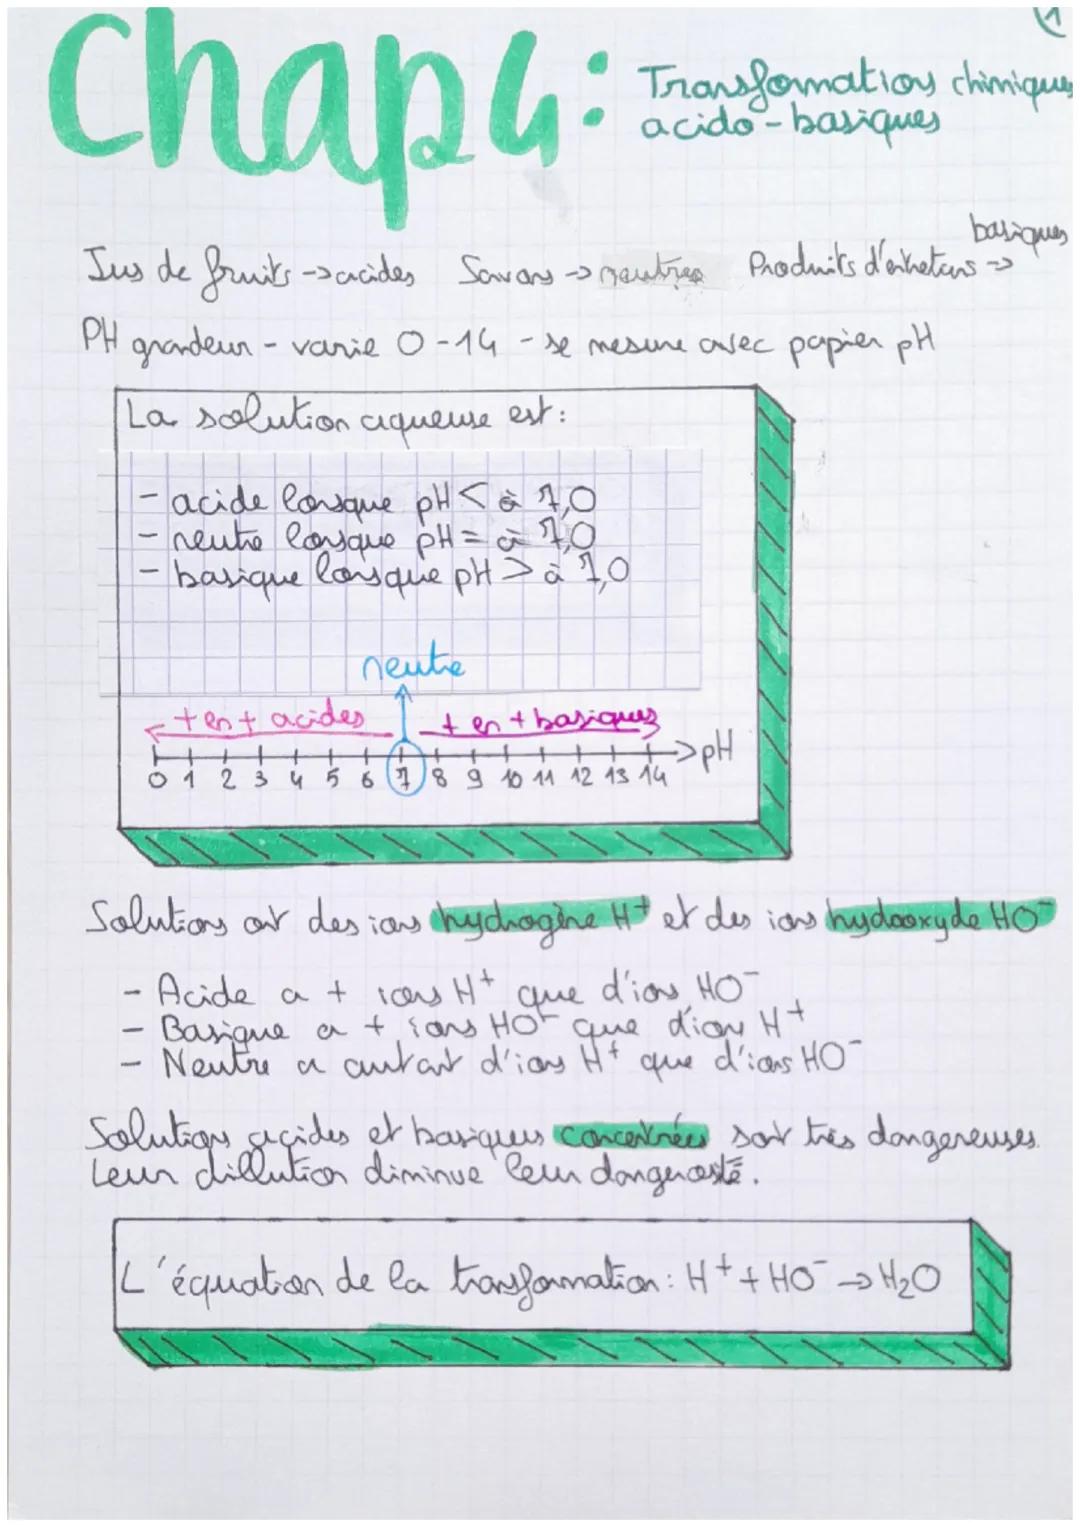 Chap4:
Transformations chimiques
acido-basiques
Jus de fruits -> acides Savons -> neutres Produits d'entretiens -> basiques
PH grandeur - varie 0-14 - se mesure avec papier pH
La solution aqueuse est:
- acide lorsque pH < à 7,0
- neutre lorsque pH = à 7,0
- basique lorsque pH > à 7,0
neutre
+ en + acides + en + basiques
0 1 2 3 4 5 6 7 8 9 10 11 12 13 14 pH
Solutions ont des ions hydrogène H⁺ et des ions hydroxyde HO⁻
- Acide a + ions H⁺ que d'ions HO⁻
- Basique a + ions HO⁻ que d'ions H⁺
- Neutre a autant d'ions H⁺ que d'ions HO⁻
Solutions acides et basiques concentrées sont très dangereuses.
Leur dillution diminue leur dangerosté.
L'équation de la transformation: H⁺ + HO⁻ -> H₂O